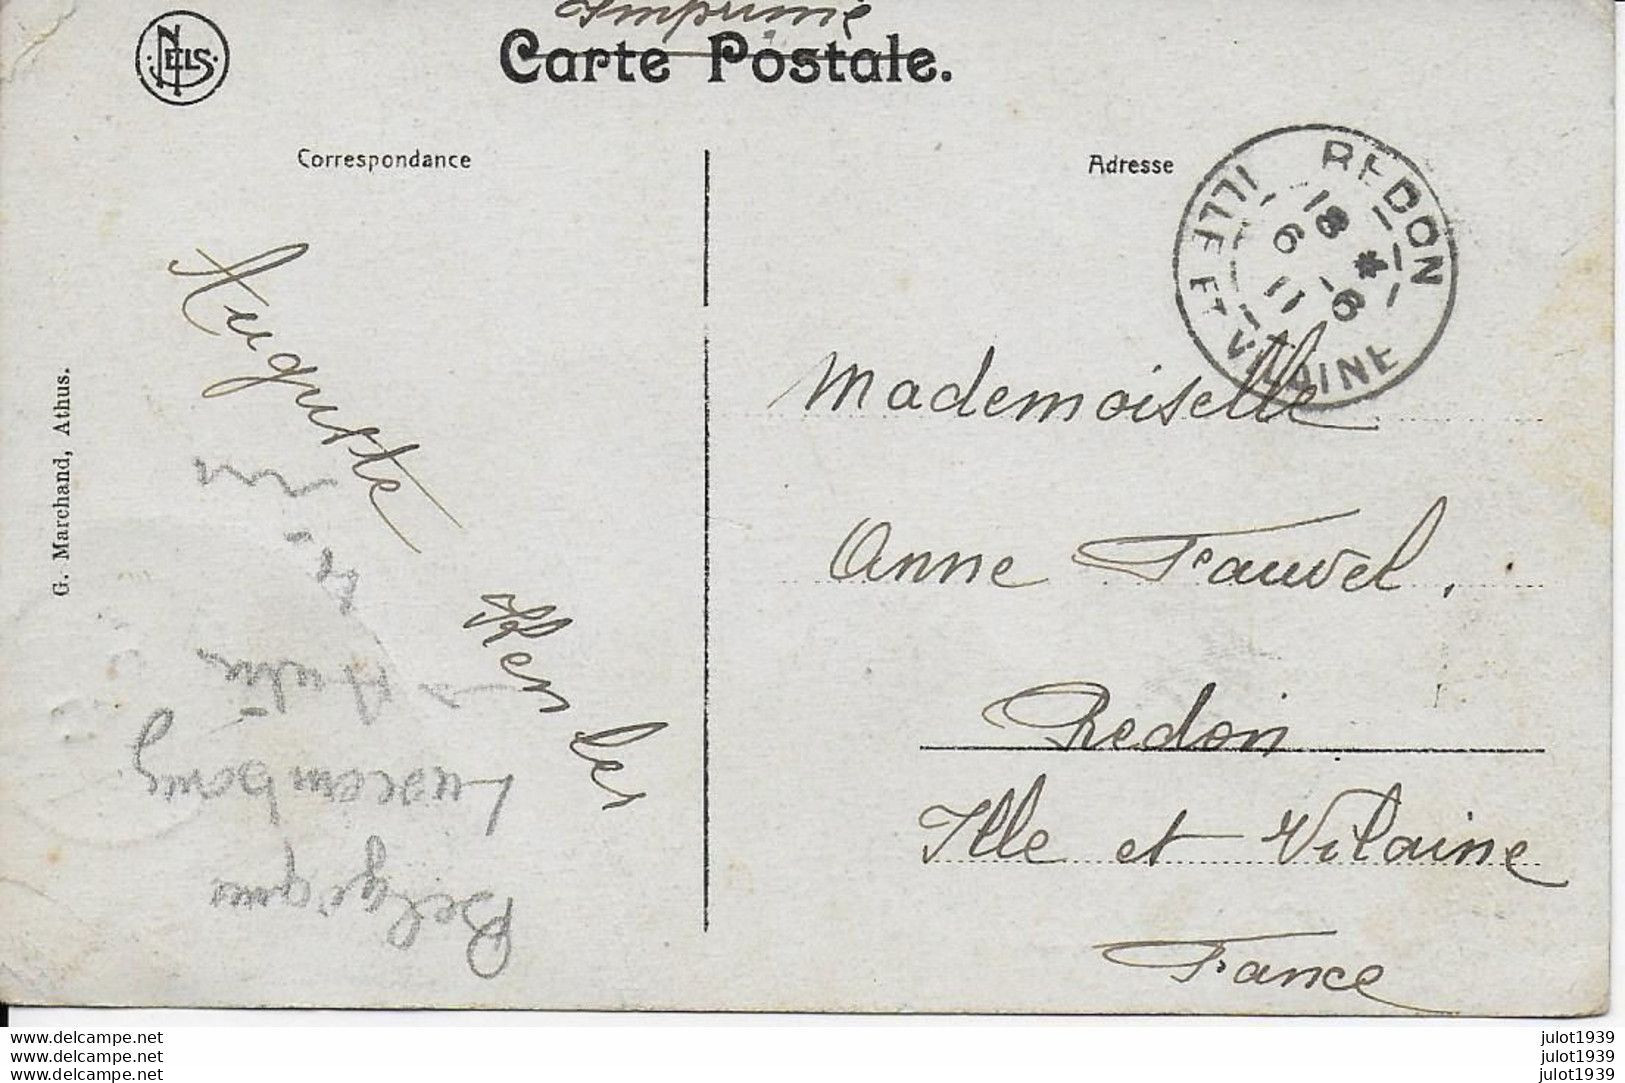 Imprimé
Carte Postale.
NELS
Correspondance
Adresse
REDON
ILLE ET VILAINE
18 *
6 -6
11
G. Marchand, Athus.
Auguste
Mademoiselle
Anne Fauvel.
Redon
Ille et Vilaine
France
Luxembourg
Belgique
www.delcampe.net
www.delcampe.net
www.delcampe.net
julot1939
julot1939
julot1939